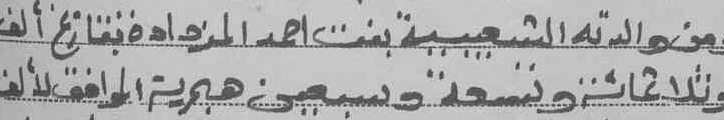 ومن والدته الشعيبية بنت احمد المزدادة بتاريخ ألف
وثلاثمائة وتسعة وسبعين هجرية الموافق لألف